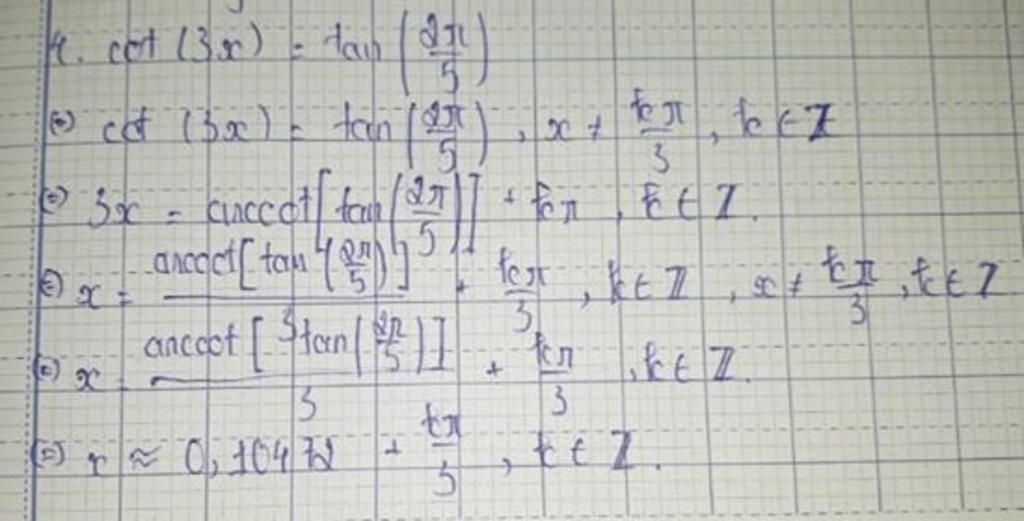 4. cot (3x) = tan (2π/5)
⇔ cot (3x) = tan (2π/5), x ≠ kπ/3, k ∈ Z
⇔ 3x = arccot[tan(2π/5)] + kπ, k ∈ Z.
⇔ x = arccot[tan(2π/5)]/3 + kπ/3, k ∈ Z, x ≠ kπ/3, k ∈ Z
⇔ x = arccot[tan(2π/5)]/3 + kπ/3, k ∈ Z.
⇔ x ≈ 0,10472 + kπ/3, k ∈ Z.